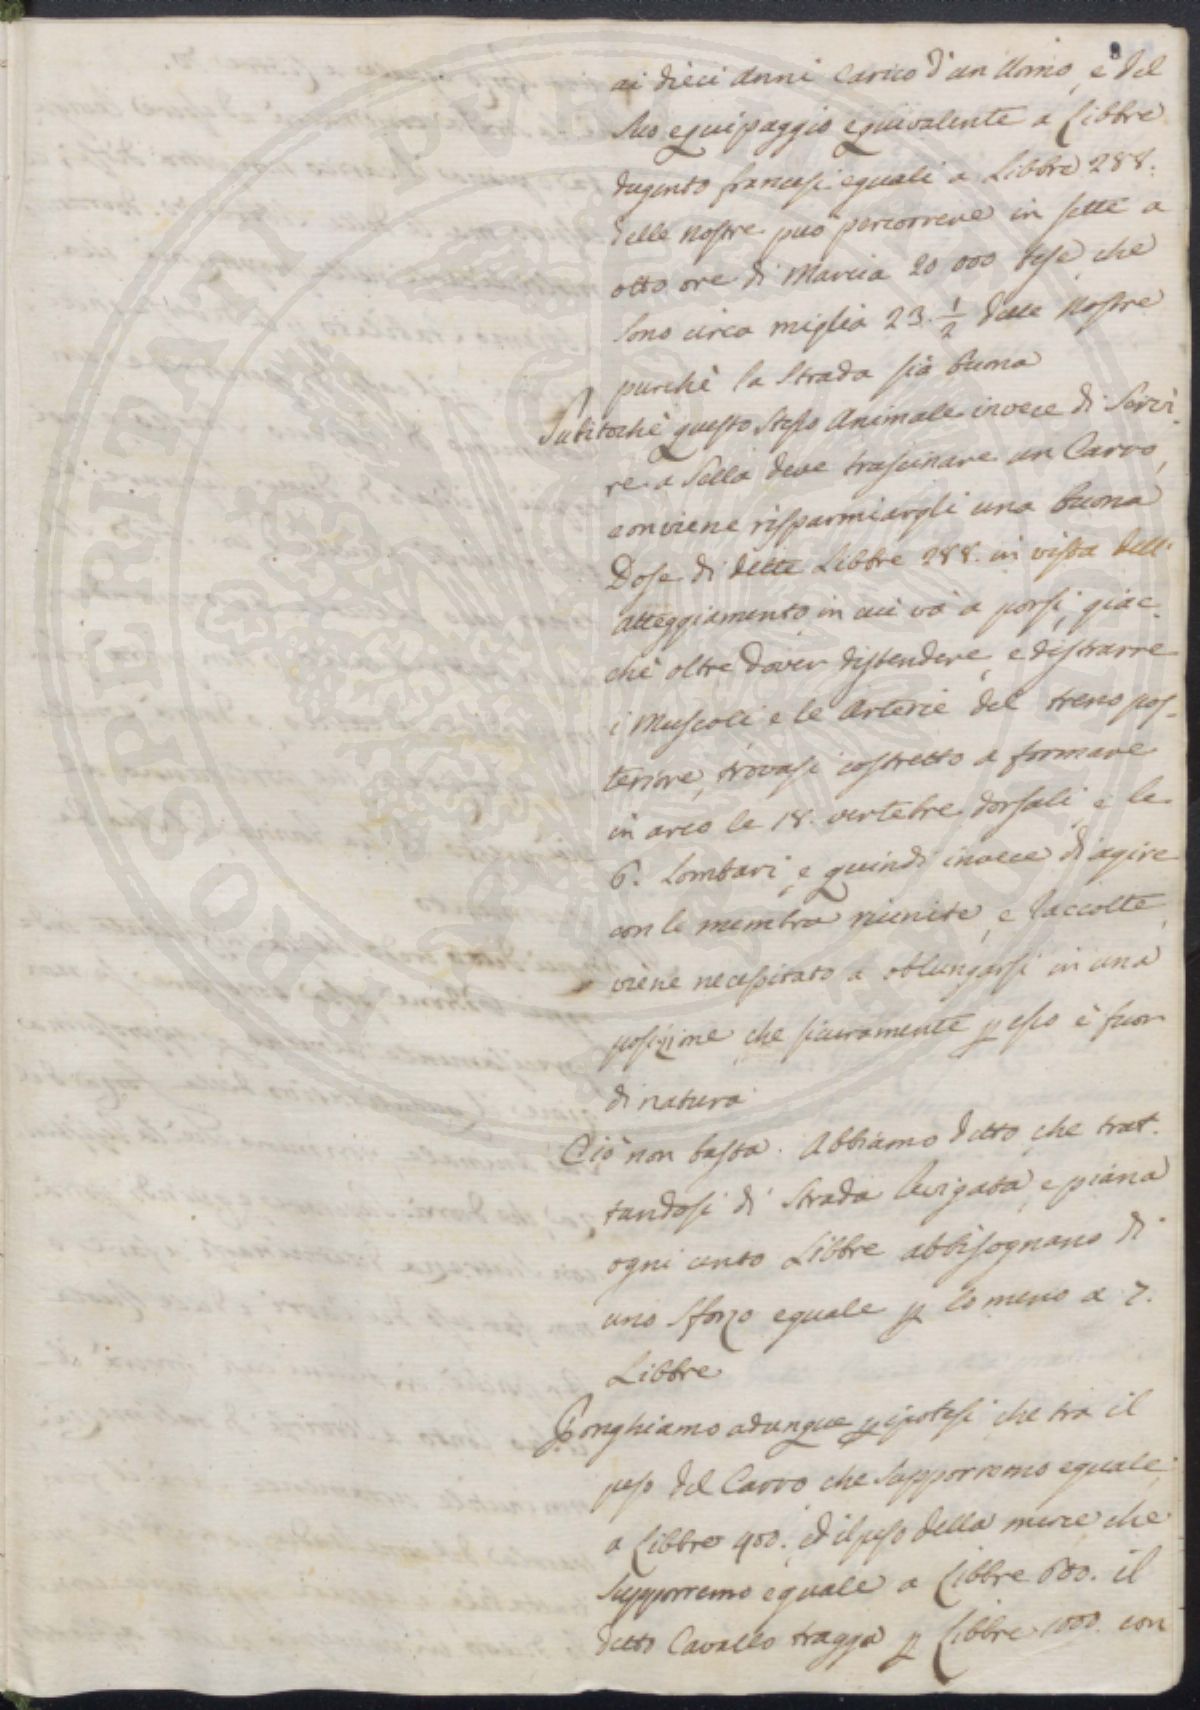 ai dieci anni carico d'un Uomo, e del
suo equipaggio equivalente a Libbre
dugento francesi eguali a Libbre 288.
delle nostre può percorrere in sette a
otto ore di Marcia 20 000 tese che
sono circa miglia 23. 1/2 delle Nostre
purchè la Strada sia buona
Subitochè questo stesso Animale invece di Servi-
re a Sella deve trascinare un Carro,
conviene risparmiargli una buona
Dose di dette Libbre 288. in vista dell'
atteggiamento in cui và a porsi, giac-
chè oltre dover distendere, e distrarre
i Muscoli e le Arterie del treno pos-
teriore, trovasi costretto a formare
in arco le 18. vertebre dorsali, e le
6. Lombari, e quindi invece di agire
con le membra riunite, e raccolte,
viene necessitato a oblungarsi in una
posizione che sicuramente p esso è fuor
di natura
Ciò non basta. Abbiamo detto che trat-
tandosi di Strada levigata, e piana
ogni cento Libbre abbisognano di
uno sforzo eguale p lo meno a 7.
Libbre
Ponghiamo adunque p ipotesi che tra il
peso del Carro che supporremo eguale
a Libbre 400. ed il peso della merce che
supporremo eguale a Libbre 600. il
detto Cavallo tragga p Libbre 1000. con
PROSPERITATI PUBLICAE